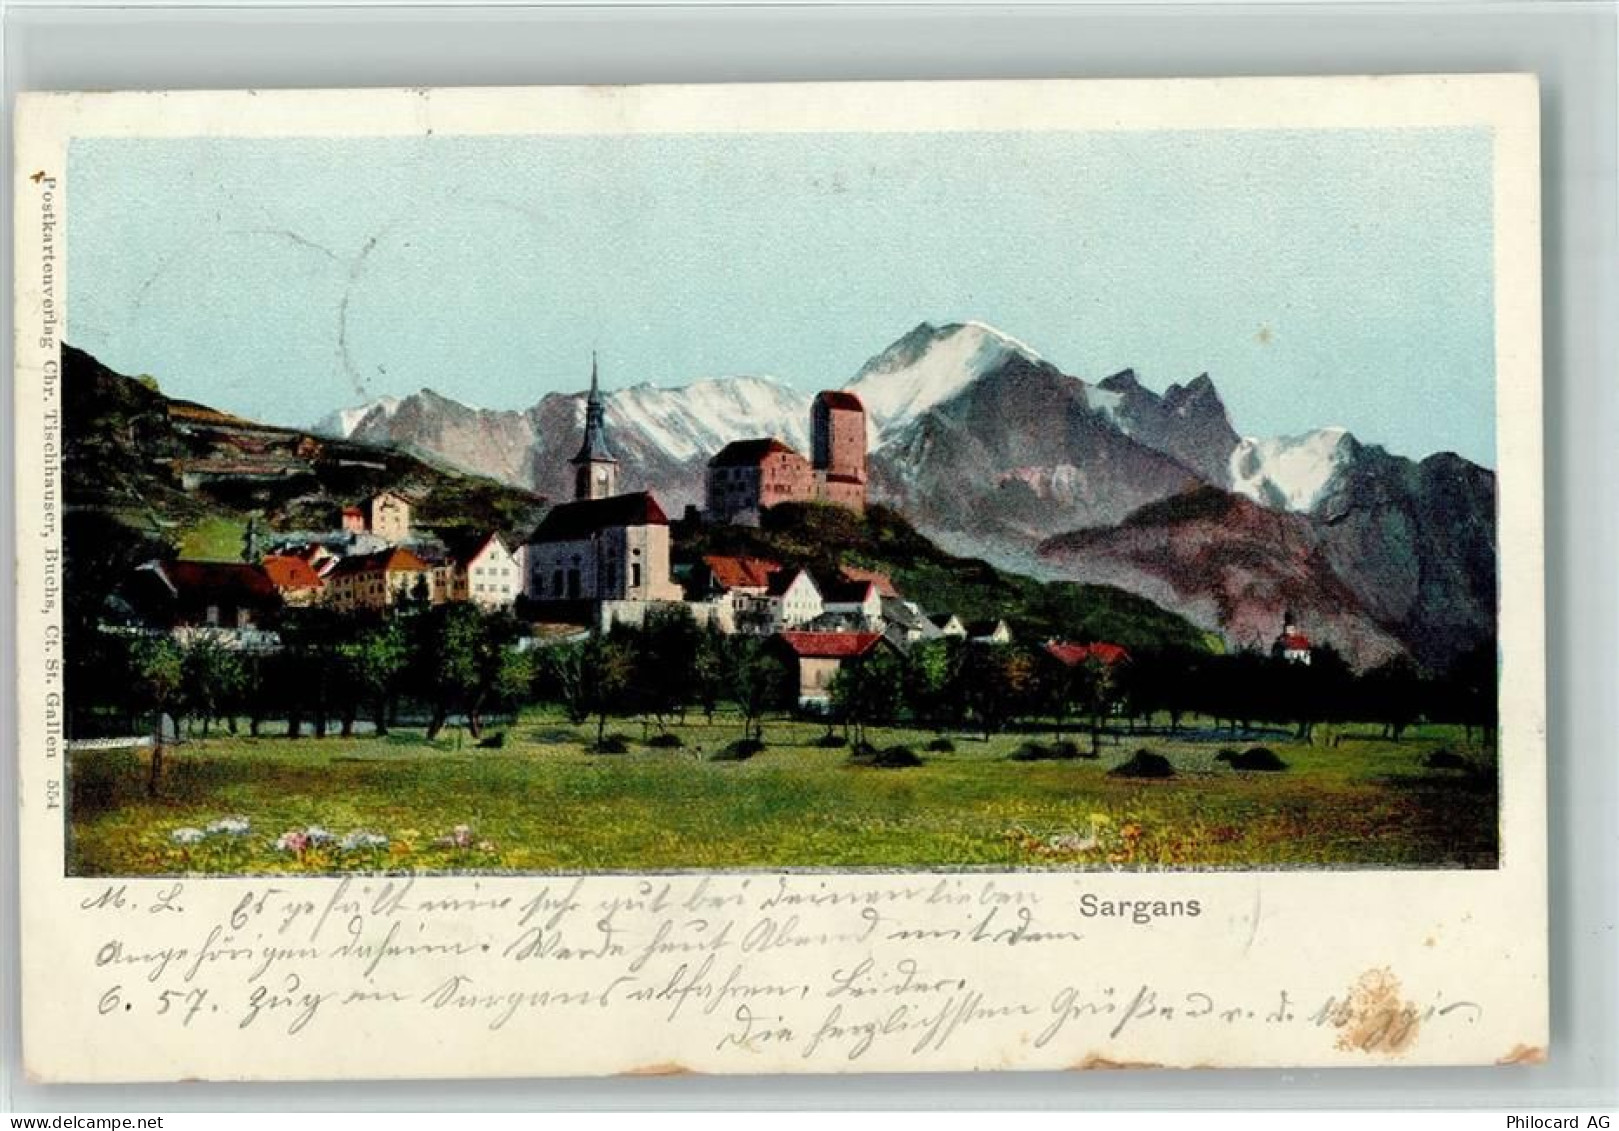 Postkartenverlag Chr. Tischhauser, Buchs, Ct. St. Gallen 554
Sargans
M. L. Es gefällt mir sehr gut bei deinen lieben
Angehörigen daheim. Werde heut Abend mit dem
6. 57. Zug in Sargans abfahren. Leider.
Die herzlichsten Grüße
Philocard AG